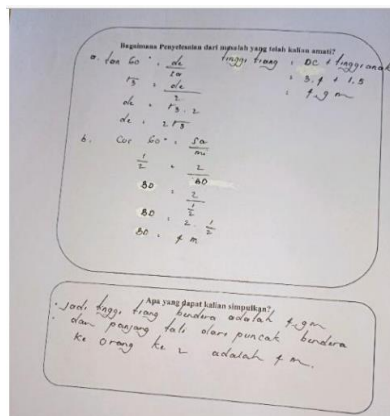 Bagaimana Penyelesaian dari masalah yang telah kalian amati?
a. tan 60° = de / sa
√3 = de / 2
de = √3 . 2
de = 2√3
tinggi tiang = DC + tinggi anak
= 3,4 + 1,5
= 4,9 m
b. Cos 60° = sa / mi
1/2 = 2 / BD
BD = 2 / 1/2
BD = 2 . 1/2
BD = 4 m
Apa yang dapat kalian simpulkan?
Jadi tinggi tiang bendera adalah 4,9m
dan panjang tali dari puncak bendera
ke orang ke 2 adalah 4 m.